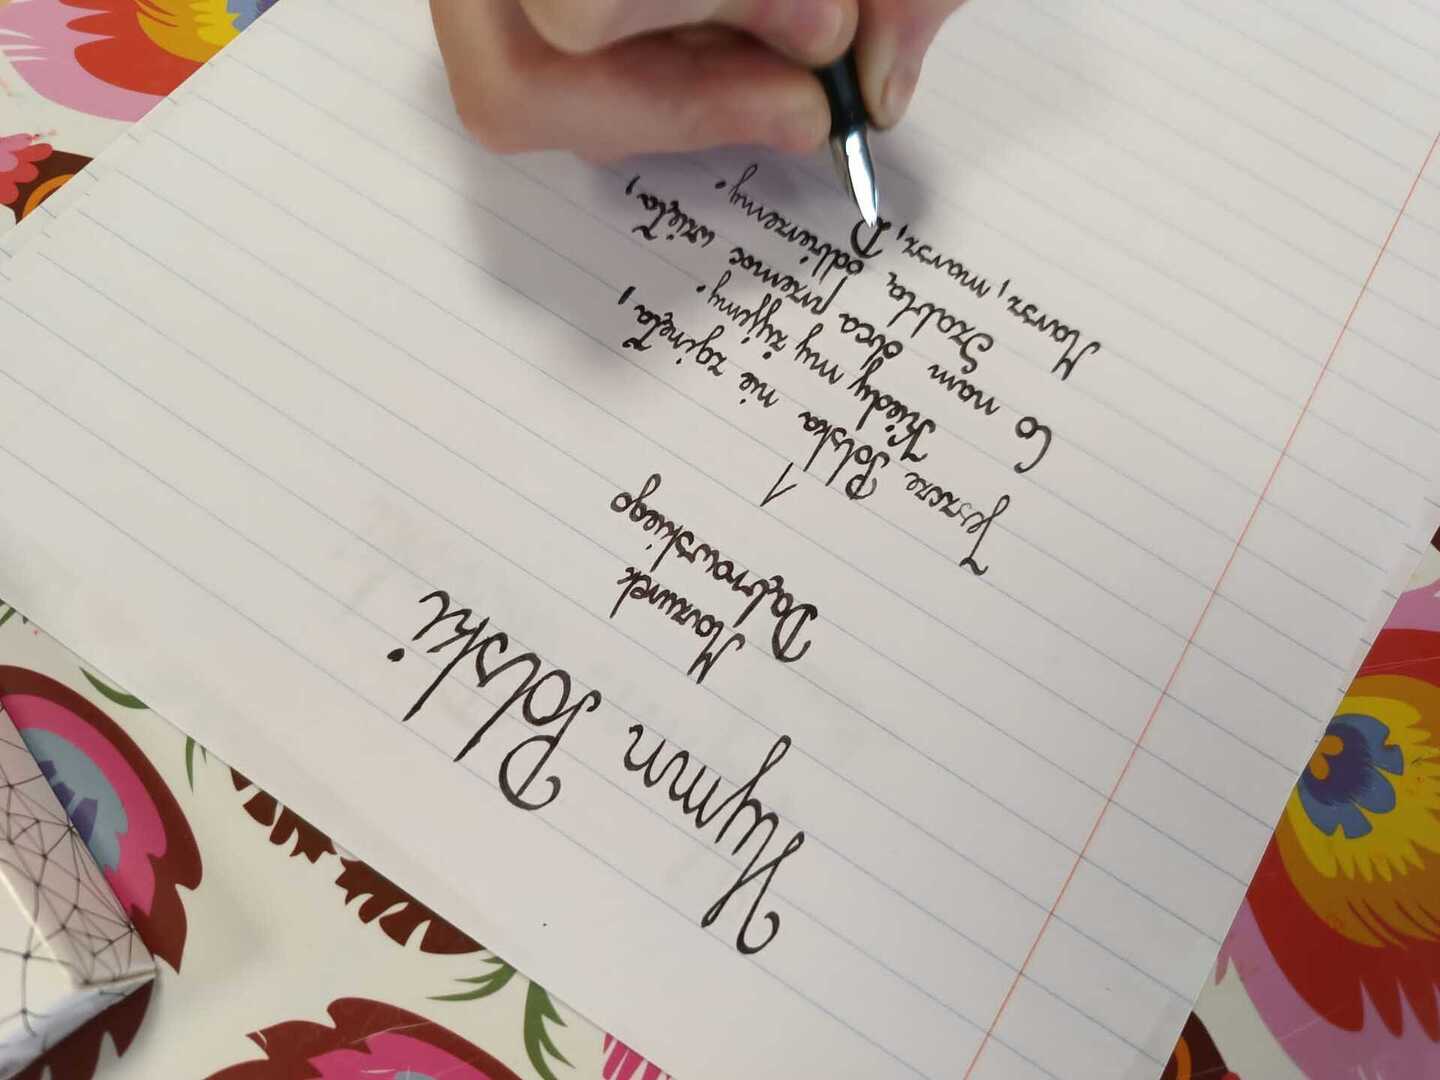 Hymn Polski
Mazurek
Dąbrowskiego
1
Jeszcze Polska nie zginęła,
Kiedy my żyjemy.
Co nam obca przemoc wzięła,
Szablą odbierzemy.
Marsz, marsz, D